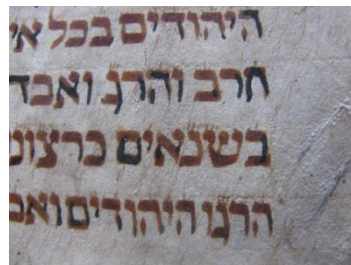 היהודים בכל אי
חרב והרג ואבד
בשנאים כרצונ
הרגו היהודים ואב